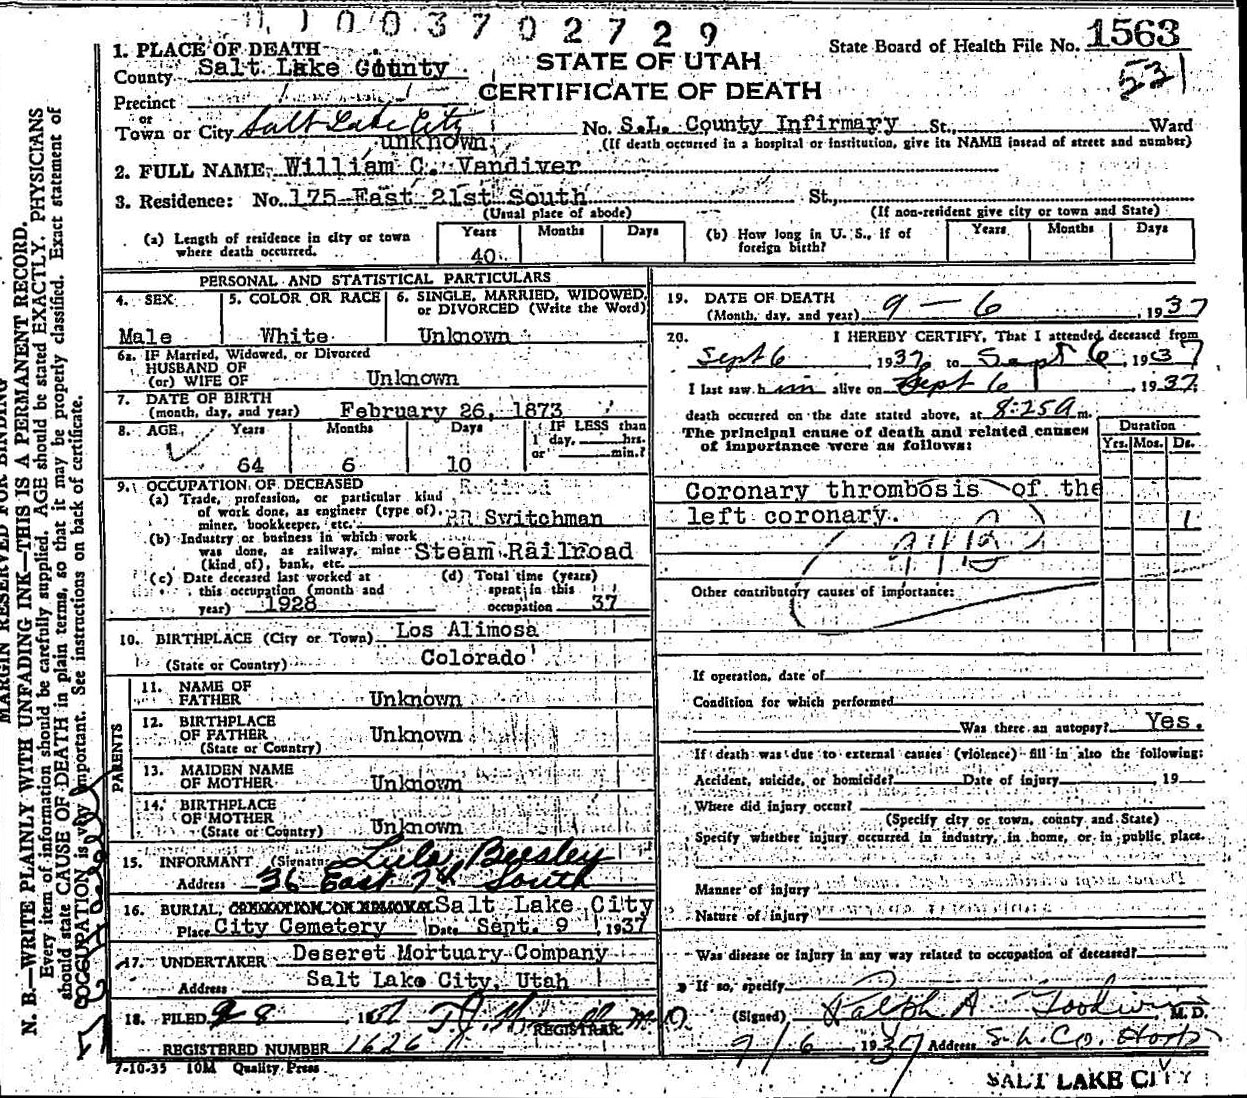 1003702729
1. PLACE OF DEATH
County Salt Lake County
STATE OF UTAH
CERTIFICATE OF DEATH
State Board of Health File No. 1563
531
Precinct
or
Town or City Salt Lake City
No. S.L. County Infirmary St., Ward
unknown
(If death occurred in a hospital or institution, give its NAME instead of street and number)
2. FULL NAME William C. Vandiver
3. Residence: No. 175 East 21st South St.,
(Usual place of abode)
(If non-resident give city or town and State)
(a) Length of residence in city or town where death occurred.
Years Months Days
40
(b) How long in U. S., if of foreign birth?
Years Months Days
PERSONAL AND STATISTICAL PARTICULARS
4. SEX
Male
5. COLOR OR RACE
White
6. SINGLE, MARRIED, WIDOWED, or DIVORCED (Write the Word)
Unknown
6a. IF Married, Widowed, or Divorced
HUSBAND OF
(or) WIFE OF Unknown
7. DATE OF BIRTH
(month, day, and year) February 26, 1873
8. AGE Years Months Days
IF LESS than
1 day, hrs.
or min.?
64 6 10
9. OCCUPATION OF DECEASED
(a) Trade, profession, or particular kind
of work done, as engineer (type of),
miner, bookkeeper, etc. RR Switchman
(b) Industry or business in which work
was done, as railway, mine
(kind of), bank, etc. Steam Railroad
(c) Date deceased last worked at
this occupation (month and
year) 1928
(d) Total time (years)
spent in this
occupation 37
10. BIRTHPLACE (City or Town) Los Alimosa
(State or Country) Colorado
PARENTS
11. NAME OF
FATHER Unknown
12. BIRTHPLACE
OF FATHER Unknown
(State or Country)
13. MAIDEN NAME
OF MOTHER Unknown
14. BIRTHPLACE
OF MOTHER
(State or Country) Unknown
15. INFORMANT (Signature) Lula Beesley
Address 36 East 7th South
16. BURIAL, CREMATION, OR REMOVAL Salt Lake City
Place City Cemetery Date Sept. 9, 1937
17. UNDERTAKER Deseret Mortuary Company
Address Salt Lake City, Utah
18. FILED 9 8 1937
REGISTRAR
REGISTERED NUMBER 1626
7-10-35 10M Quality Press
19. DATE OF DEATH
(Month, day, and year) 9-6, 1937
20. I HEREBY CERTIFY, That I attended deceased from
Sept 6 1937 to Sept 6, 1937
I last saw him alive on Sept 6, 1937
death occurred on the date stated above, at 8:25 a m.
The principal cause of death and related causes
of importance were as follows:
Duration
Yrs. Mos. Ds.
Coronary thrombosis of the
left coronary. 1
Other contributory causes of importance:
If operation, date of
Condition for which performed
Was there an autopsy? Yes.
If death was due to external causes (violence) fill in also the following:
Accident, suicide, or homicide? Date of injury 19
Where did injury occur?
(Specify city or town, county and State)
Specify whether injury occurred in industry, in home, or in public place.
Manner of injury
Nature of injury
Was disease or injury in any way related to occupation of deceased?
If so, specify
(Signed) Ralph A. Goodwin M. D.
9/6, 1937 Address S.L. Co. Hosp
SALT LAKE CITY
MARGIN RESERVED FOR BINDING
N. B.—WRITE PLAINLY WITH UNFADING INK—THIS IS A PERMANENT RECORD.
Every item of information should be carefully supplied. AGE should be stated EXACTLY. PHYSICIANS
should state CAUSE OF DEATH in plain terms, so that it may be properly classified. Exact statement of
OCCUPATION is very important. See instructions on back of certificate.